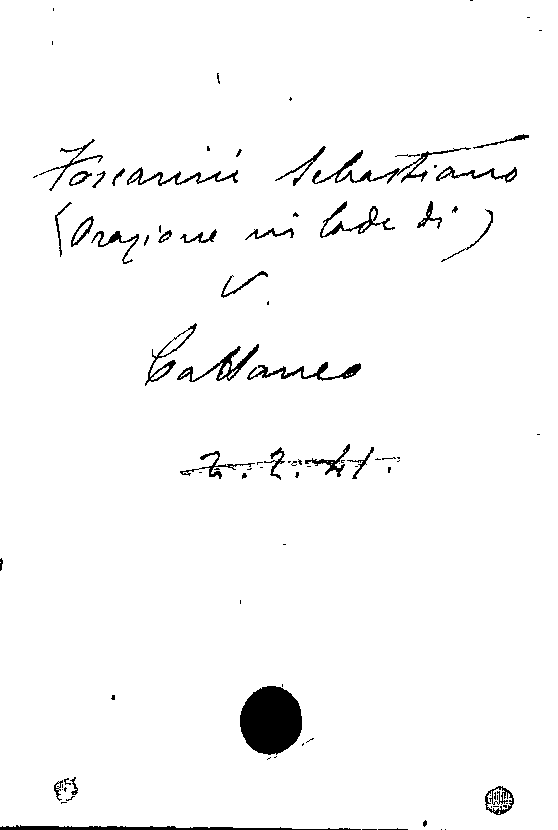 Foscarini Sebastiano
(Orazione in lode di)
V.
Cattaneo
2. 2. 41.